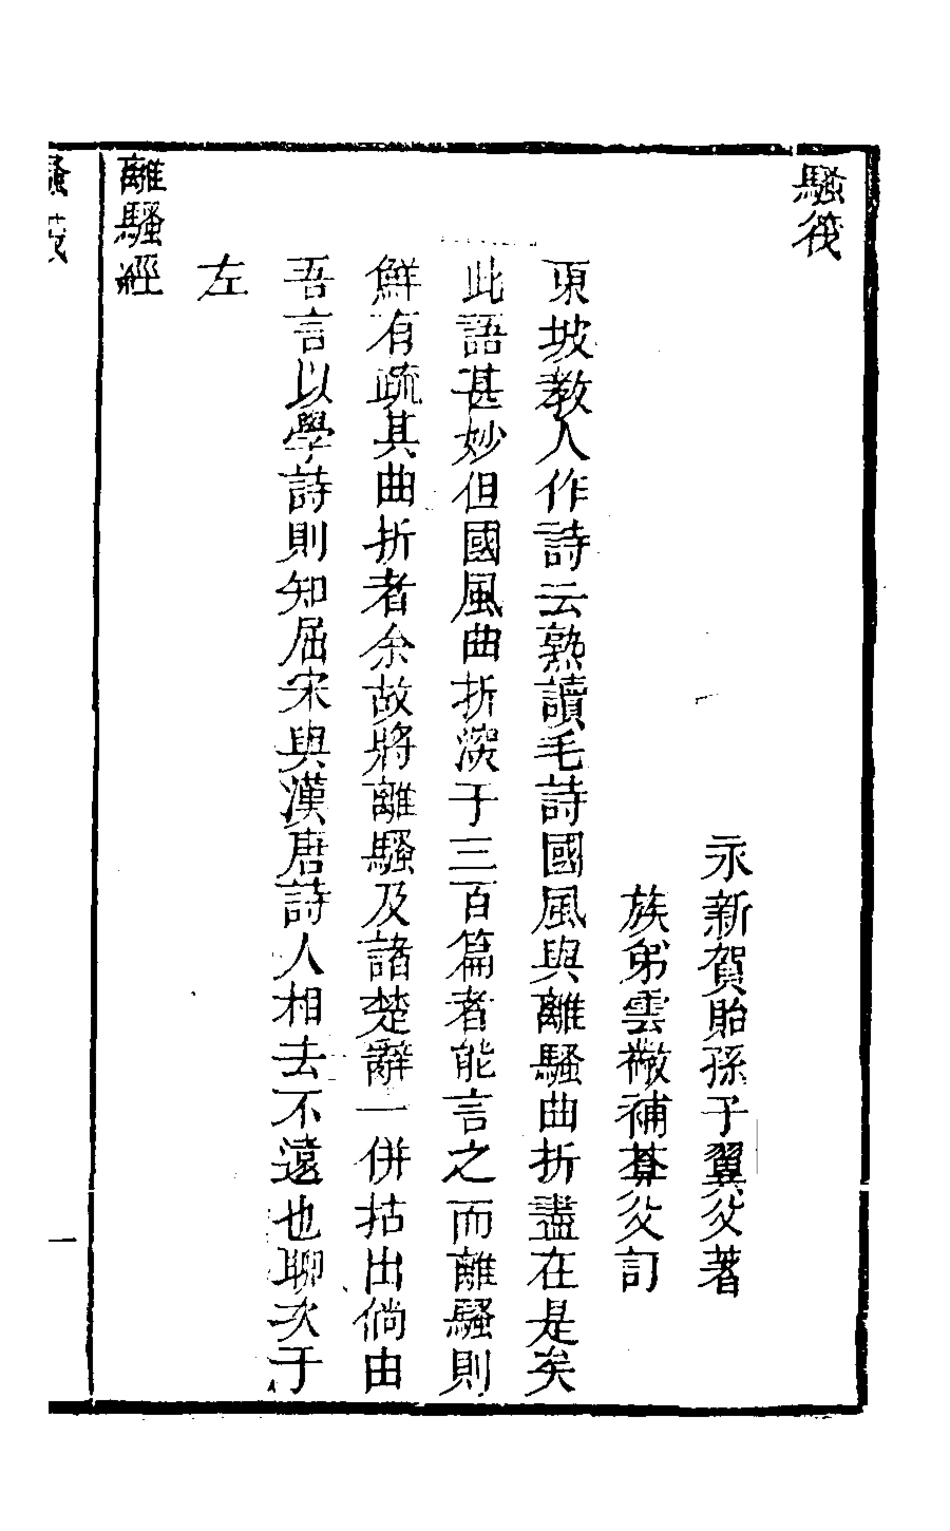 騷筏
永新賀貽孫子翼父著
族弟雲黻補葊父訂
東坡教人作詩云熟讀毛詩國風與離騷曲折盡在是矣
此語甚妙但國風曲折深于三百篇者能言之而離騷則
鮮有疏其曲折者余故將離騷及諸楚辭一併拈出倘由
吾言以學詩則知屈宋與漢唐詩人相去不遠也聊次于
左
離騷經
騷筏
一